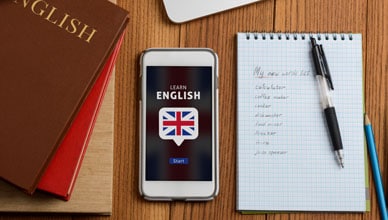 ENGLISH
LEARN
ENGLISH
Start
My new words list
calculator
coffee maker
cooker
dishwasher
food mixer